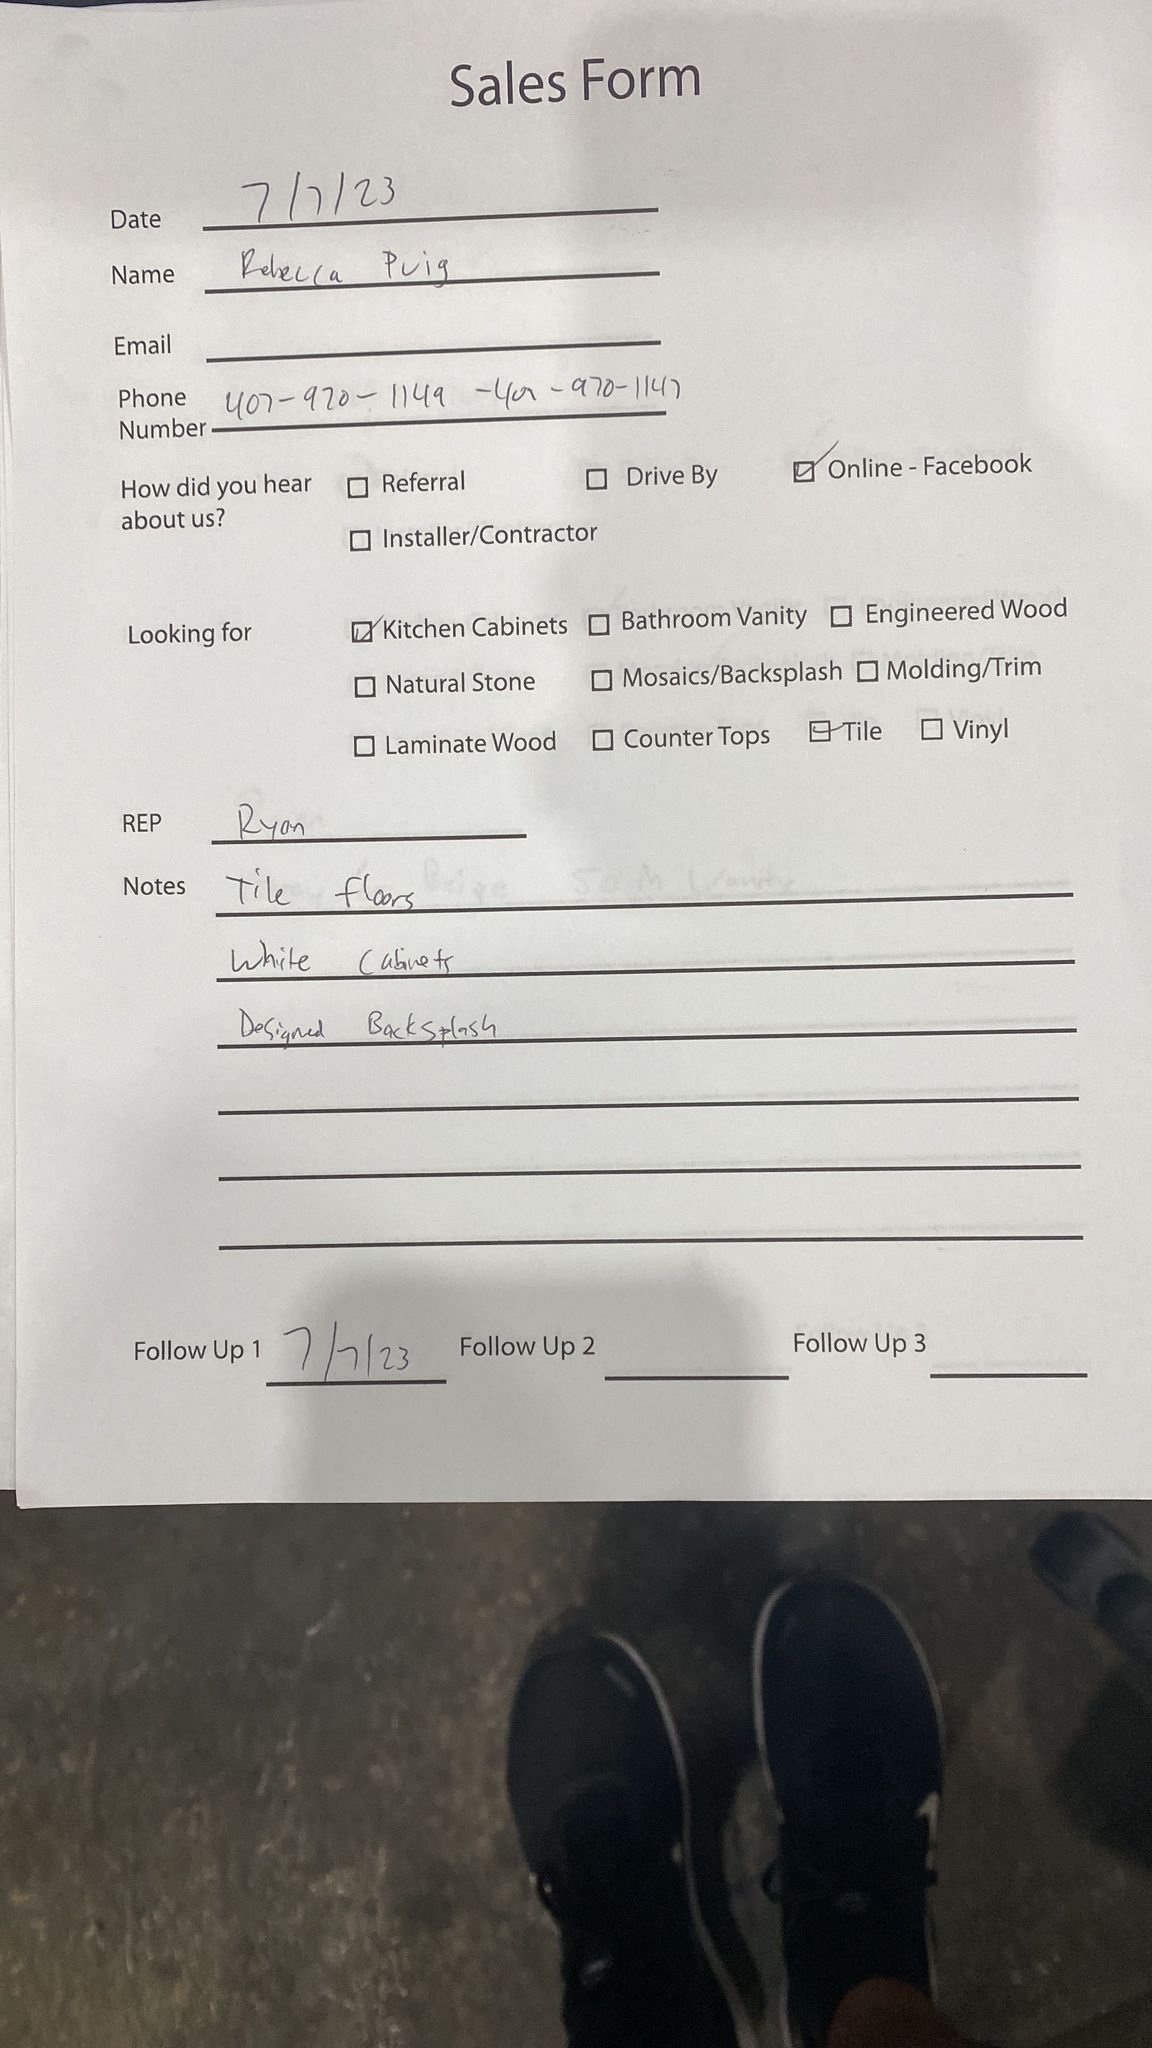 Sales Form
Date 7/7/23
Name Rebecca Puig
Email
Phone Number 407-920-1149 -407-970-1147
How did you hear about us? Referral Drive By Online - Facebook
Installer/Contractor
Looking for Kitchen Cabinets Bathroom Vanity Engineered Wood
Natural Stone Mosaics/Backsplash Molding/Trim
Laminate Wood Counter Tops Tile Vinyl
REP Ryan
Notes Tile floors
White Cabinets
Designed Backsplash
Follow Up 1 7/7/23 Follow Up 2 Follow Up 3